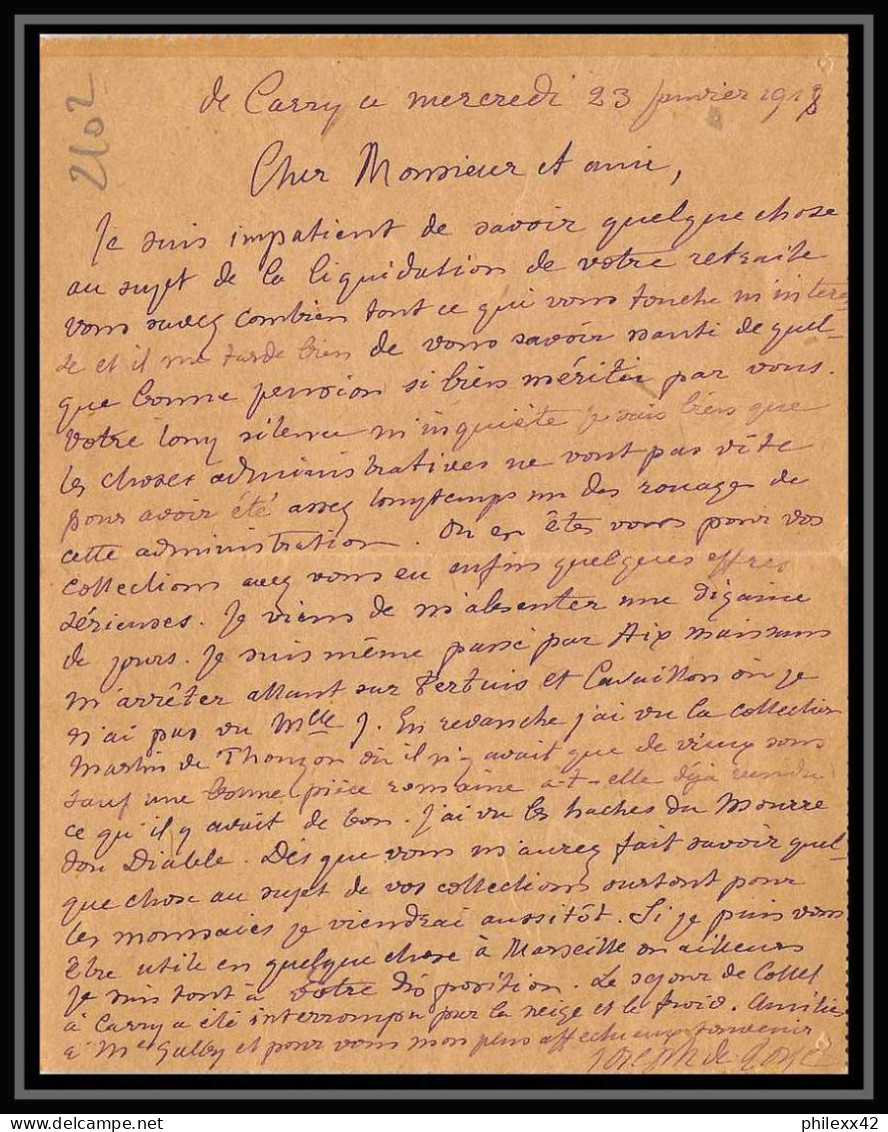 2102
de Carry ce mercredi 23 janvier 1918
Cher Monsieur et ami,
Je suis impatient de savoir quelque chose
au sujet de la liquidation de votre retraite
vous savez combien tout ce qui vous touche m'intéres-
se et il me tarde bien de vous savoir nanti de quel-
que bonne pension si bien méritée par vous.
Votre long silence m'inquiète je sais bien que
les choses administratives ne vont pas vite
pour avoir été assez longtemps un des rouages de
cette administration. Où en êtes vous pour vos
collections avez vous eu enfin quelques offres
sérieuses. Je viens de m'absenter une dizaine
de jours. Je suis même passé par Aix mais sans
m'arrêter allant sur Pertuis et Cavaillon où je
n'ai pas vu Mlle J. En revanche j'ai vu la collection
Martin de Thouzon où il n'y avait que de vieux sous
sauf une bonne pièce romaine a-t-elle déjà vendu
ce qu'il y avait de bon. J'ai vu les haches du Mourre
dou Diable. Dès que vous m'aurez fait savoir quel-
que chose au sujet de vos collections surtout pour
les monnaies je viendrai aussitôt. Si je puis vous
être utile en quelque chose à Marseille ou ailleurs
je suis tout à votre disposition. Le séjour de Collet
à Carry a été interrompu par la neige et le froid. Amitiés
à Me et pour vous mon plus affectueux souvenir
Joseph de
philexx42